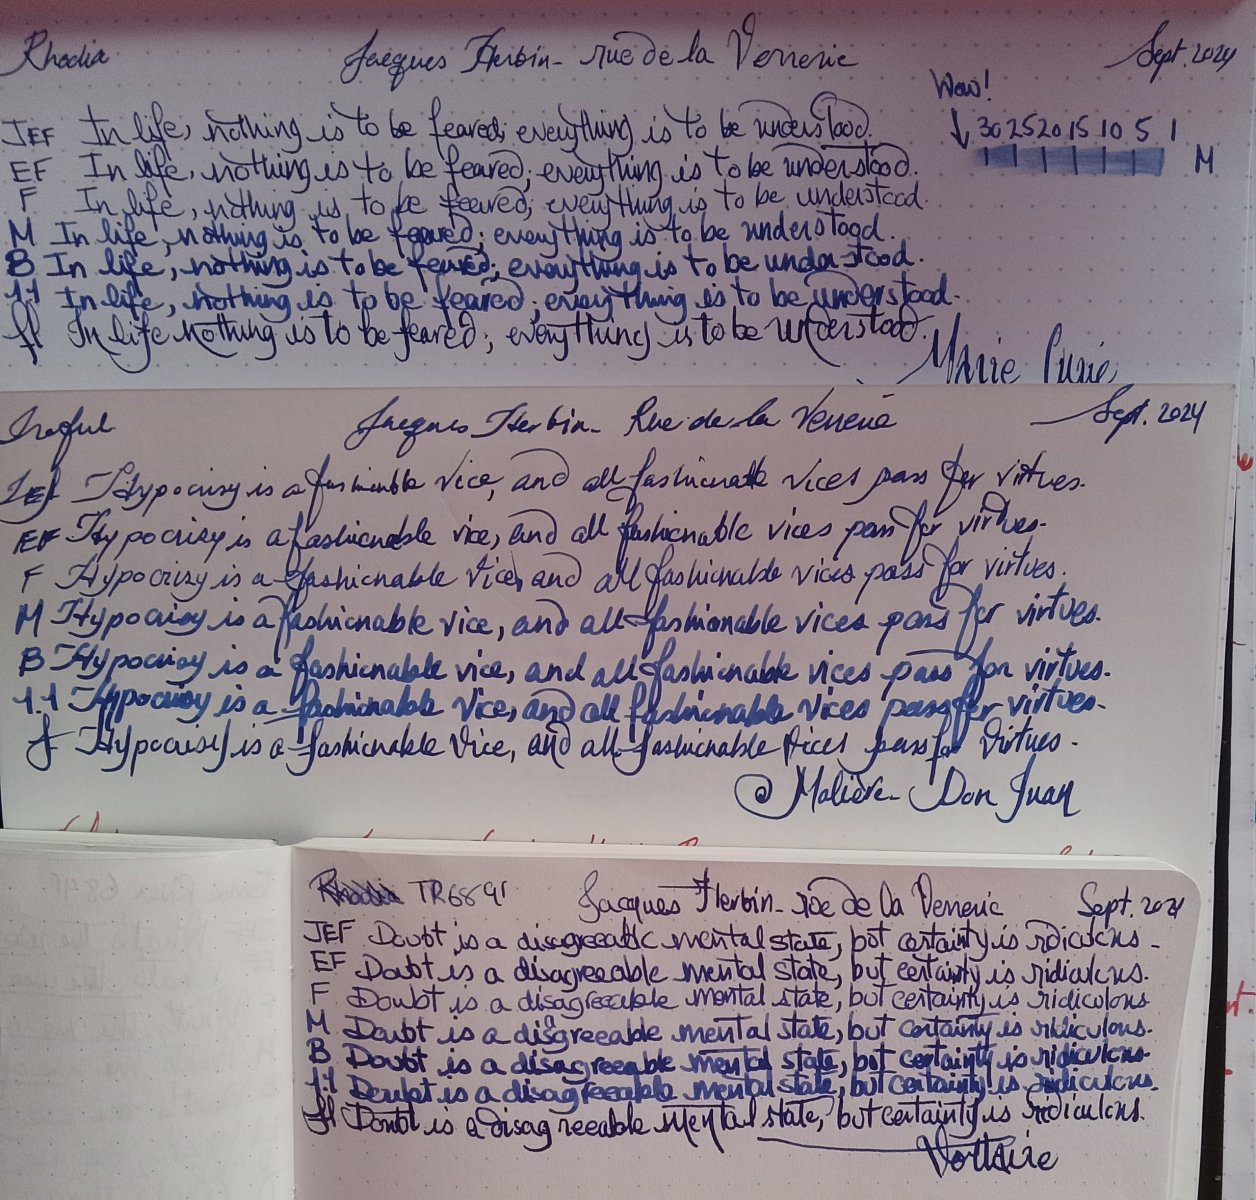 Rhodia Jacques Herbin - rue de la Verrerie Sept. 2024
Wow!
↓ 30 25 20 15 10 5 1
M
JEF In life, nothing is to be feared; everything is to be understood.
EF In life, nothing is to be feared; everything is to be understood.
F In life, nothing is to be feared; everything is to be understood.
M In life, nothing is to be feared; everything is to be understood.
B In life, nothing is to be feared; everything is to be understood.
1.1 In life, nothing is to be feared; everything is to be understood.
ff In life nothing is to be feared; everything is to be understood.
Marie Curie
Jacques Herbin - Rue de la Verrerie Sept. 2024
JEF Hypocrisy is a fashionable vice, and all fashionable vices pass for virtues.
EF Hypocrisy is a fashionable vice, and all fashionable vices pass for virtues.
F Hypocrisy is a fashionable vice, and all fashionable vices pass for virtues.
M Hypocrisy is a fashionable vice, and all fashionable vices pass for virtues.
B Hypocrisy is a fashionable vice, and all fashionable vices pass for virtues.
1.1 Hypocrisy is a fashionable vice, and all fashionable vices pass for virtues.
f Hypocrisy is a fashionable vice, and all fashionable vices pass for virtues.
Molière - Don Juan
Rhodia TR68 91 Jacques Herbin - rue de la Verrerie Sept. 2024
JEF Doubt is a disagreeable mental state, but certainty is ridiculous.
EF Doubt is a disagreeable mental state, but certainty is ridiculous.
F Doubt is a disagreeable mental state, but certainty is ridiculous
M Doubt is a disagreeable mental state, but certainty is ridiculous.
B Doubt is a disagreeable mental state, but certainty is ridiculous.
1.1 Doubt is a disagreeable mental state, but certainty is ridiculous.
ff Doubt is a disagreeable mental state, but certainty is ridiculous.
Voltaire